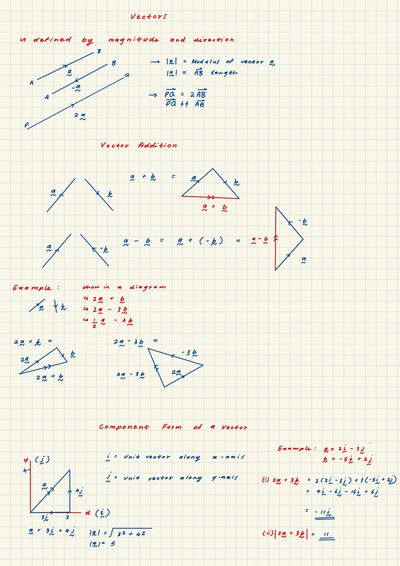 Vectors
↳ defined by magnitude and direction
B
a
A
B
-a
A
Q
2a
P
→ |a| = Modulus of vector a
|a| = AB length
→ PQ = 2AB
PQ ++ AB
Vector Addition
a
b
a + b =
a
b
a + b
a
-b
a - b = a + (-b) =
a - b
-b
a
Example: Show in a diagram
a
b
↳ 2a + b
↳ 2a - 3b
↳ 1/2 a - 2b
2a + b =
2a
b
2a + b
2a - 3b =
-3b
2a
2a - 3b
Component Form of a Vector
y (j)
4
a
4j
3i
3
x (i)
a = 3i + 4j
i = unit vector along x-axis
j = unit vector along y-axis
|a| = √3² + 4²
|a| = 5
Example: a = 2i - 3j
b = -5i + 2j
(i) 2a + 3b = 2(2i - 3j) + 3(-5i + 2j)
= 4i - 6j - 15i + 6j
= -11i
(ii) |2a + 3b| = 11